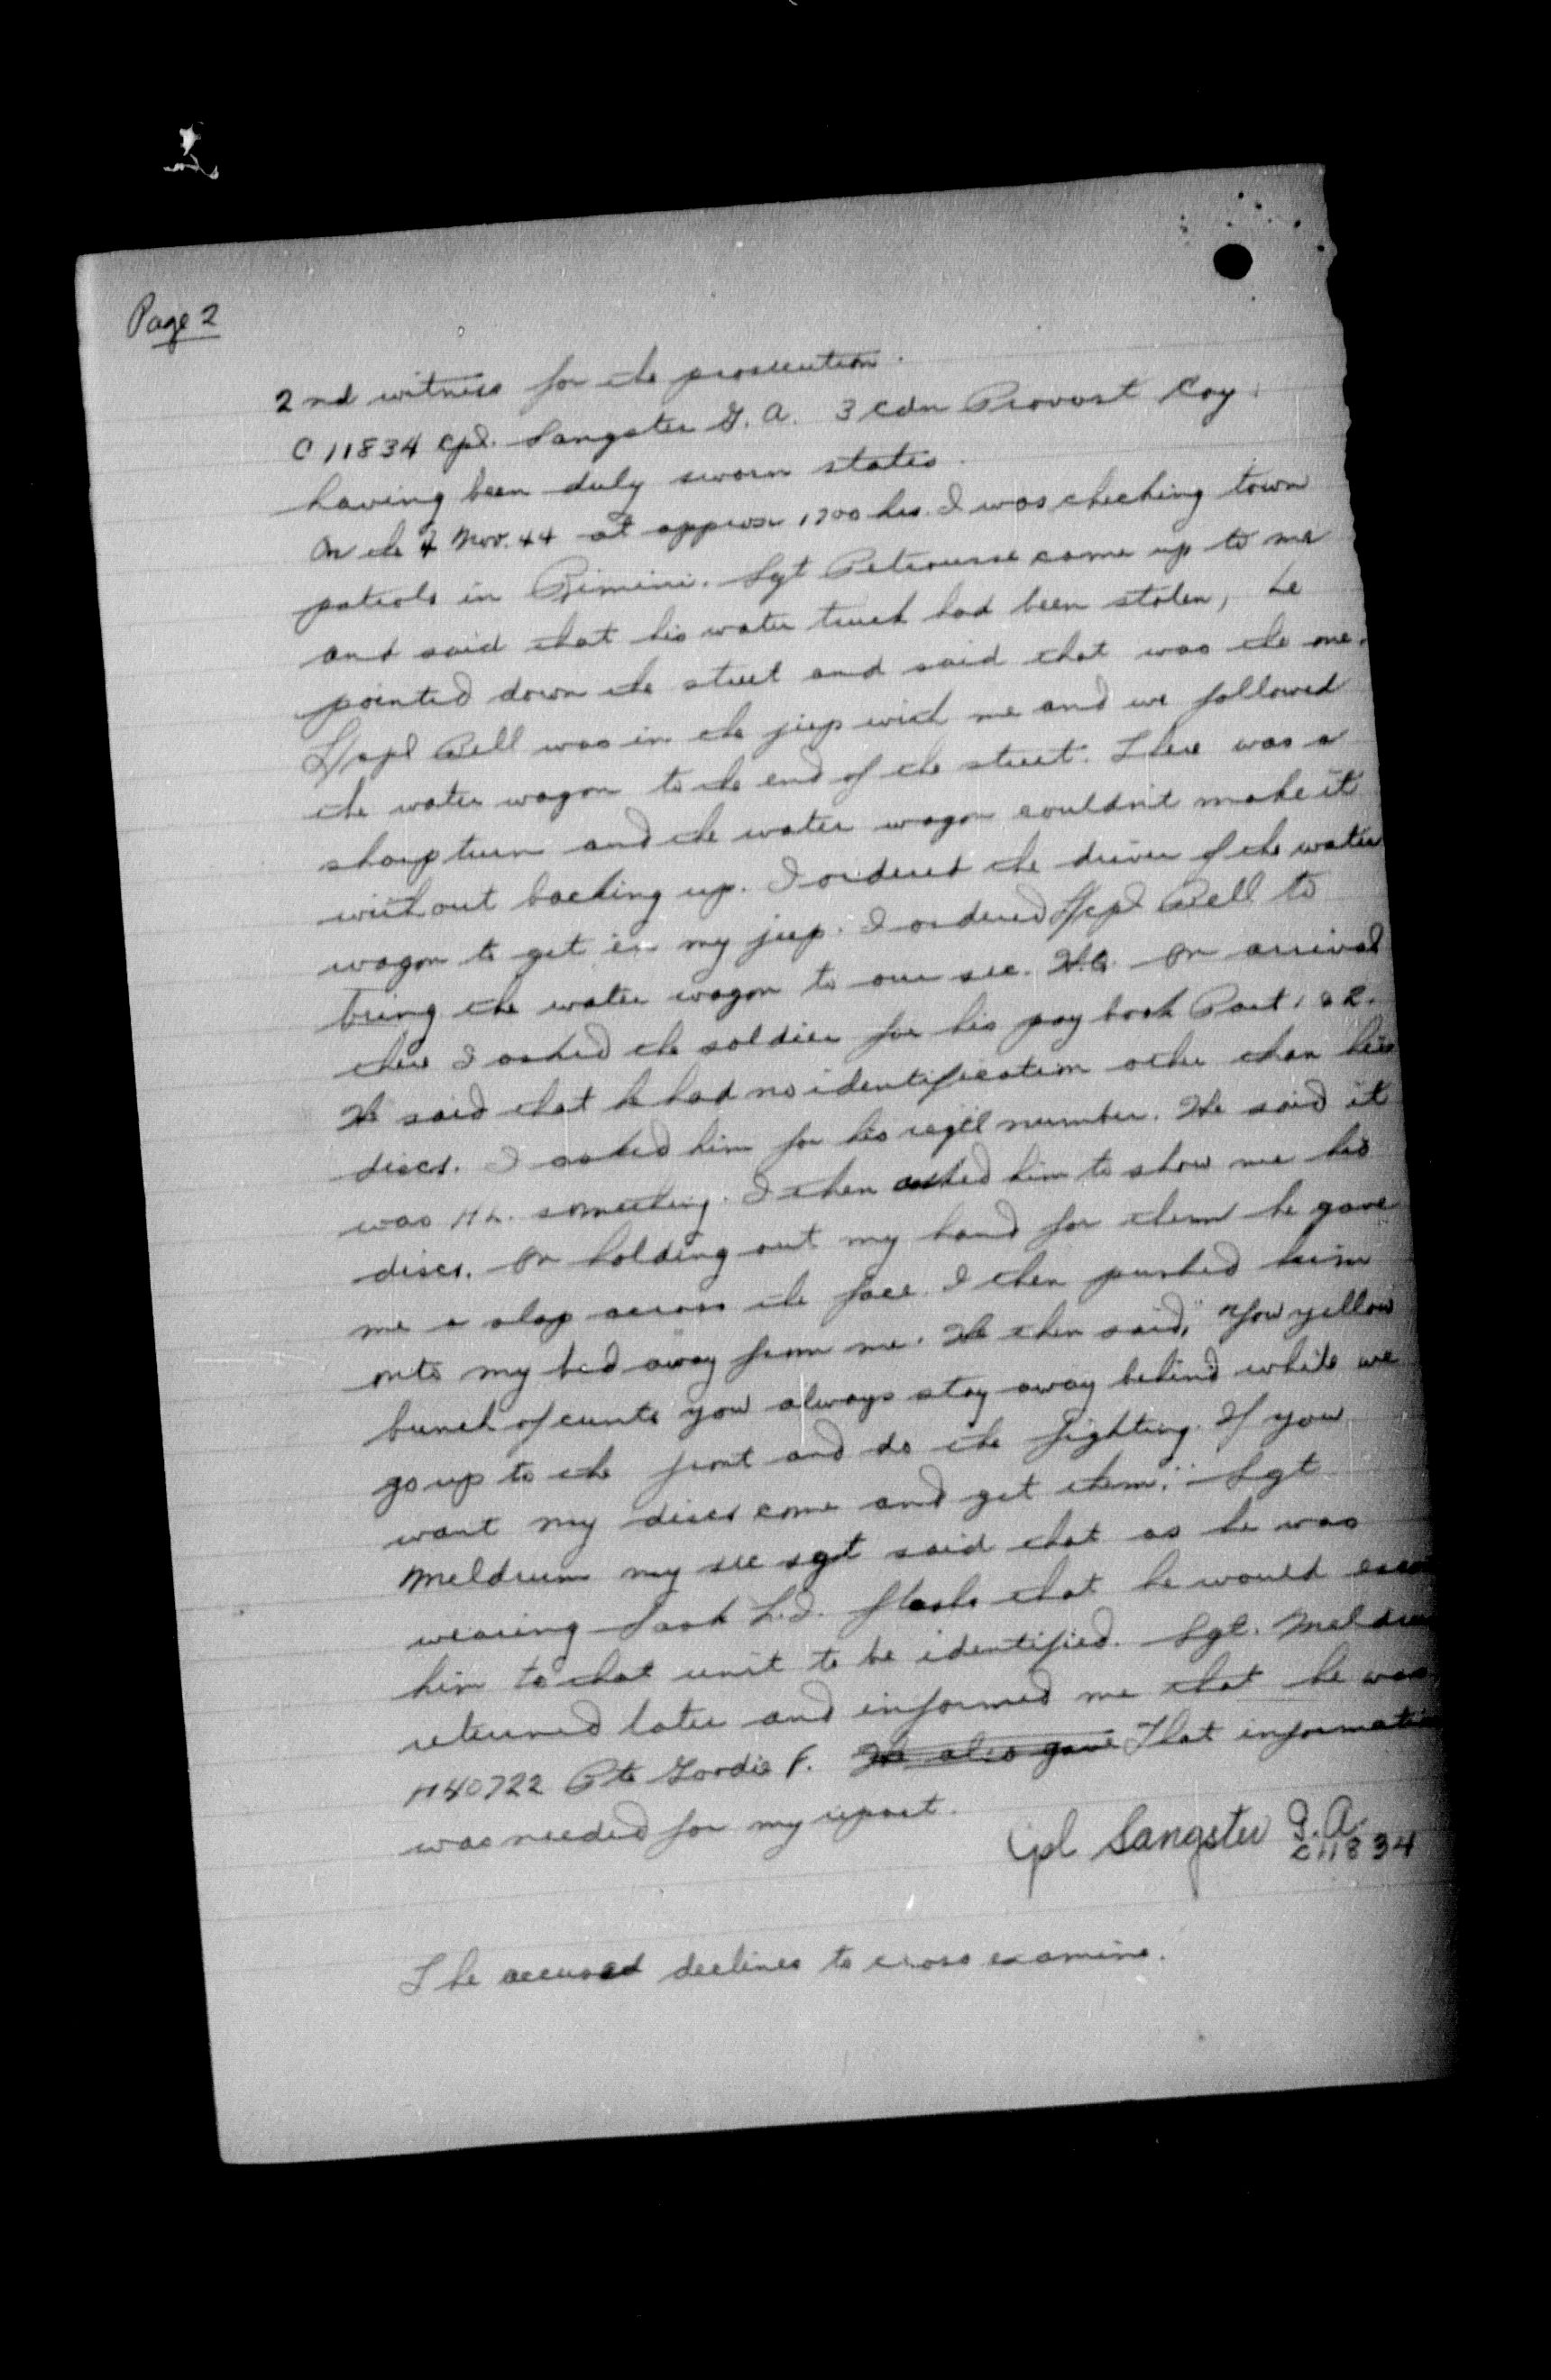 Page 2
2nd witness for the prosecution.
C 11834 Cpl. Sangster G. A. 3 Cdn Provost Coy.
having been duly sworn states.
On the 4 Nov. 44 at approx 1700 hrs. I was checking town
patrols in Rimini. Sgt came up to me
and said that his water truck had been stolen, he
pointed down the street and said that was the one.
L/Cpl Bell was in the jeep with me and we followed
the water wagon to the end of the street. There was a
sharp turn and the water wagon couldn't make it
without backing up. I ordered the driver of the water
wagon to get in my jeep. I ordered L/Cpl Bell to
bring the water wagon to our sec. H.Q. On arrival
there I asked the soldier for his pay book Part 1 & 2.
He said that he had no identification other than his
discs. I asked him for his reg'tl number. He said it
was H.L. something. I then asked him to show me his
discs. On holding out my hand for them he gave
me a slap across the face. I then pushed him
onto my bed away from me. He then said, "You yellow
bunch of cunts you always stay away behind while we
go up to the front and do the fighting. If you
want my discs come and get them." Sgt
Meldrum my sec sgt said that as he was
wearing Sask L.I. flashs that he would
him to that unit to be identified. Sgt. Meldrum
returned later and informed me that he was
H40722 Pte Gordie F. He also gave That information
was needed for my report.
Cpl Sangster G. A.
C11834
The accused declines to cross examine.